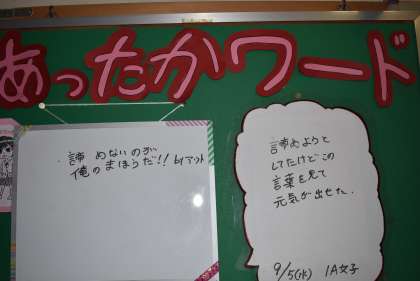 あったかワード
諦めないのが
俺のまほうだ!! byアスト
諦めようと
してたけどこの
言葉を見て
元気が出せた.
9/5(水) 1A女子